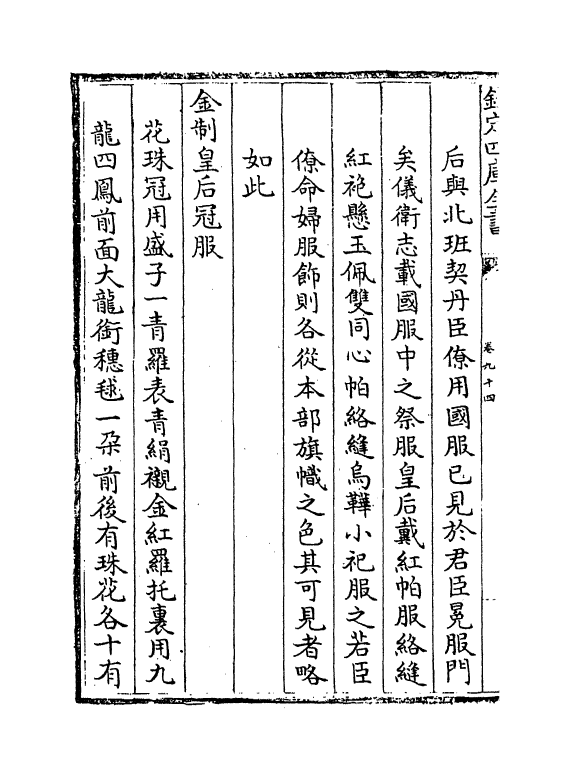 欽定四庫全書
卷九十四
后與北班契丹臣僚用國服已見於君臣冕服門
矣儀衛志載國服中之祭服皇后戴紅帕服絡縫
紅袍懸玉佩雙同心帕絡縫烏鞾小祀服之若臣
僚命婦服飾則各從本部旗幟之色其可見者略
如此
金制皇后冠服
花珠冠用盛子一青羅表青絹襯金紅羅托裏用九
龍四鳳前面大龍銜穗毬一朶前後有珠花各十有